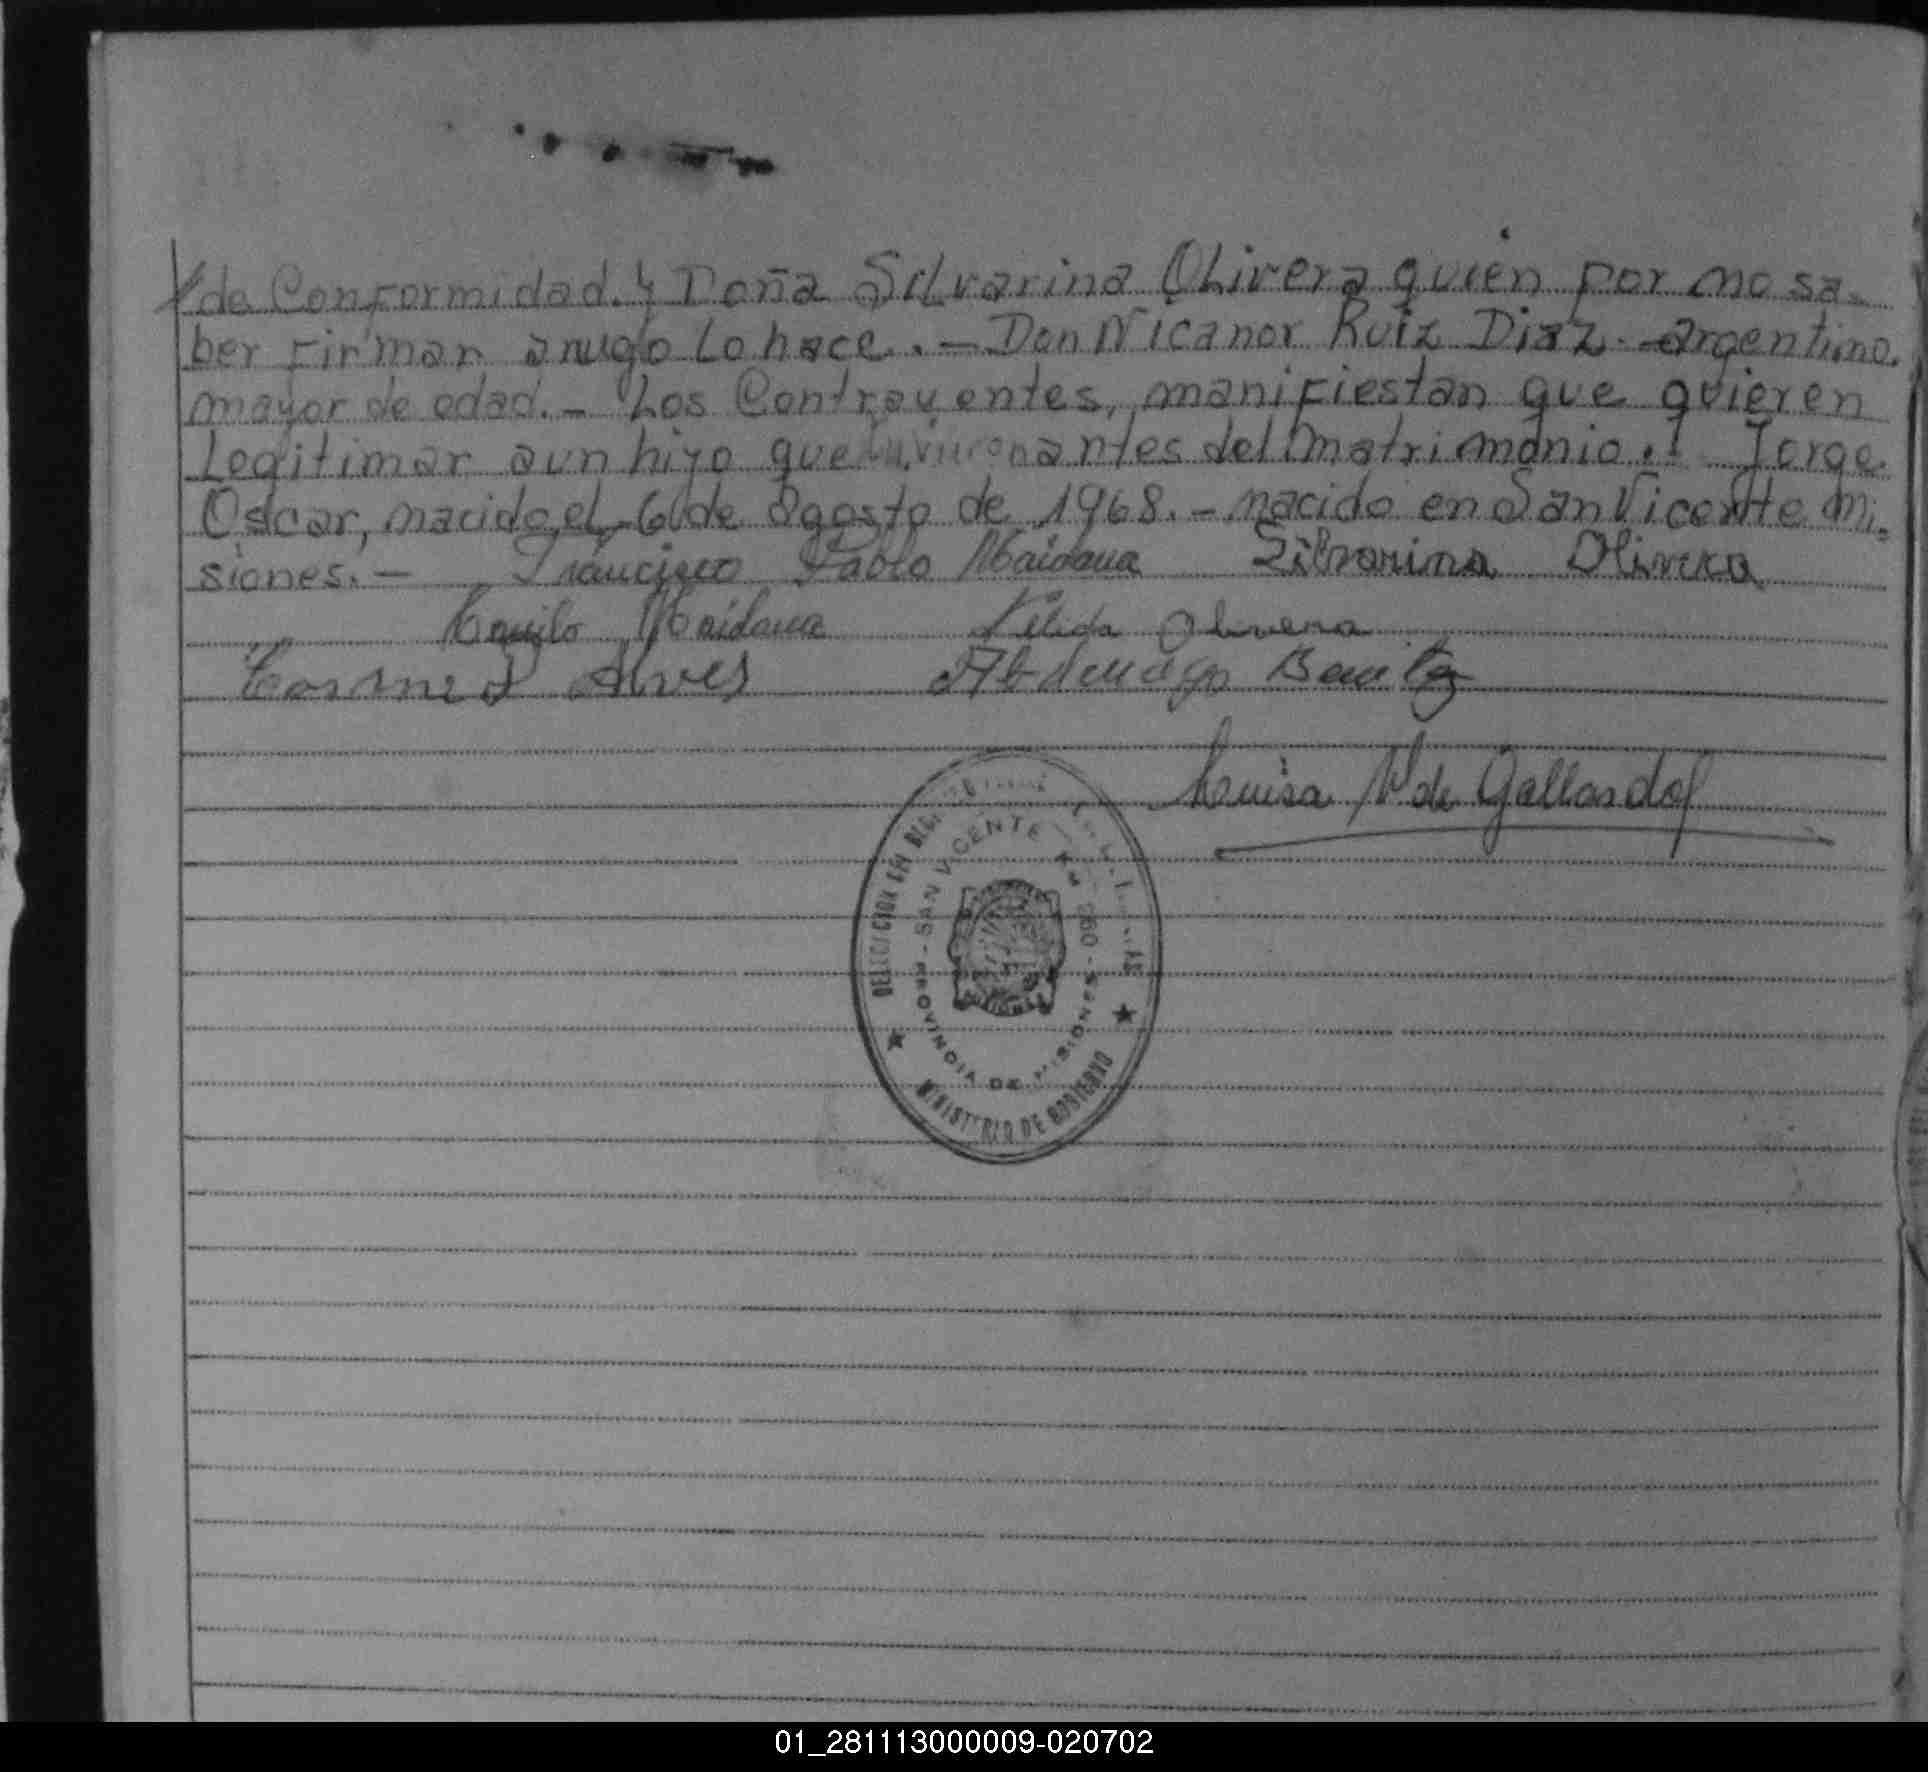 de Conformidad. y Doña Silvarina Olivera quien por no sa-
ber firmar aruego Lo hace. - Don Nicanor Ruiz Diaz. - argentino.
mayor de edad. - Los Contrayentes, manifiestan que quieren
Legitimar aun hijo que tuvieron antes del matrimonio. Jorge
Oscar, nacido el 6 de Agosto de 1968. - nacido en San Vicente Mi-
siones. - Francisco Pablo Maidana Silvarina Olivera
Camilo Maidana Nelida Olivera
Alves Abdenago Benitez
Luisa V de Gallardo
DELEGACION
SAN VICENTE - KM 960 -
PROVINCIA DE MISIONES
MINISTERIO DE GOBIERNO
01_281113000009-020702